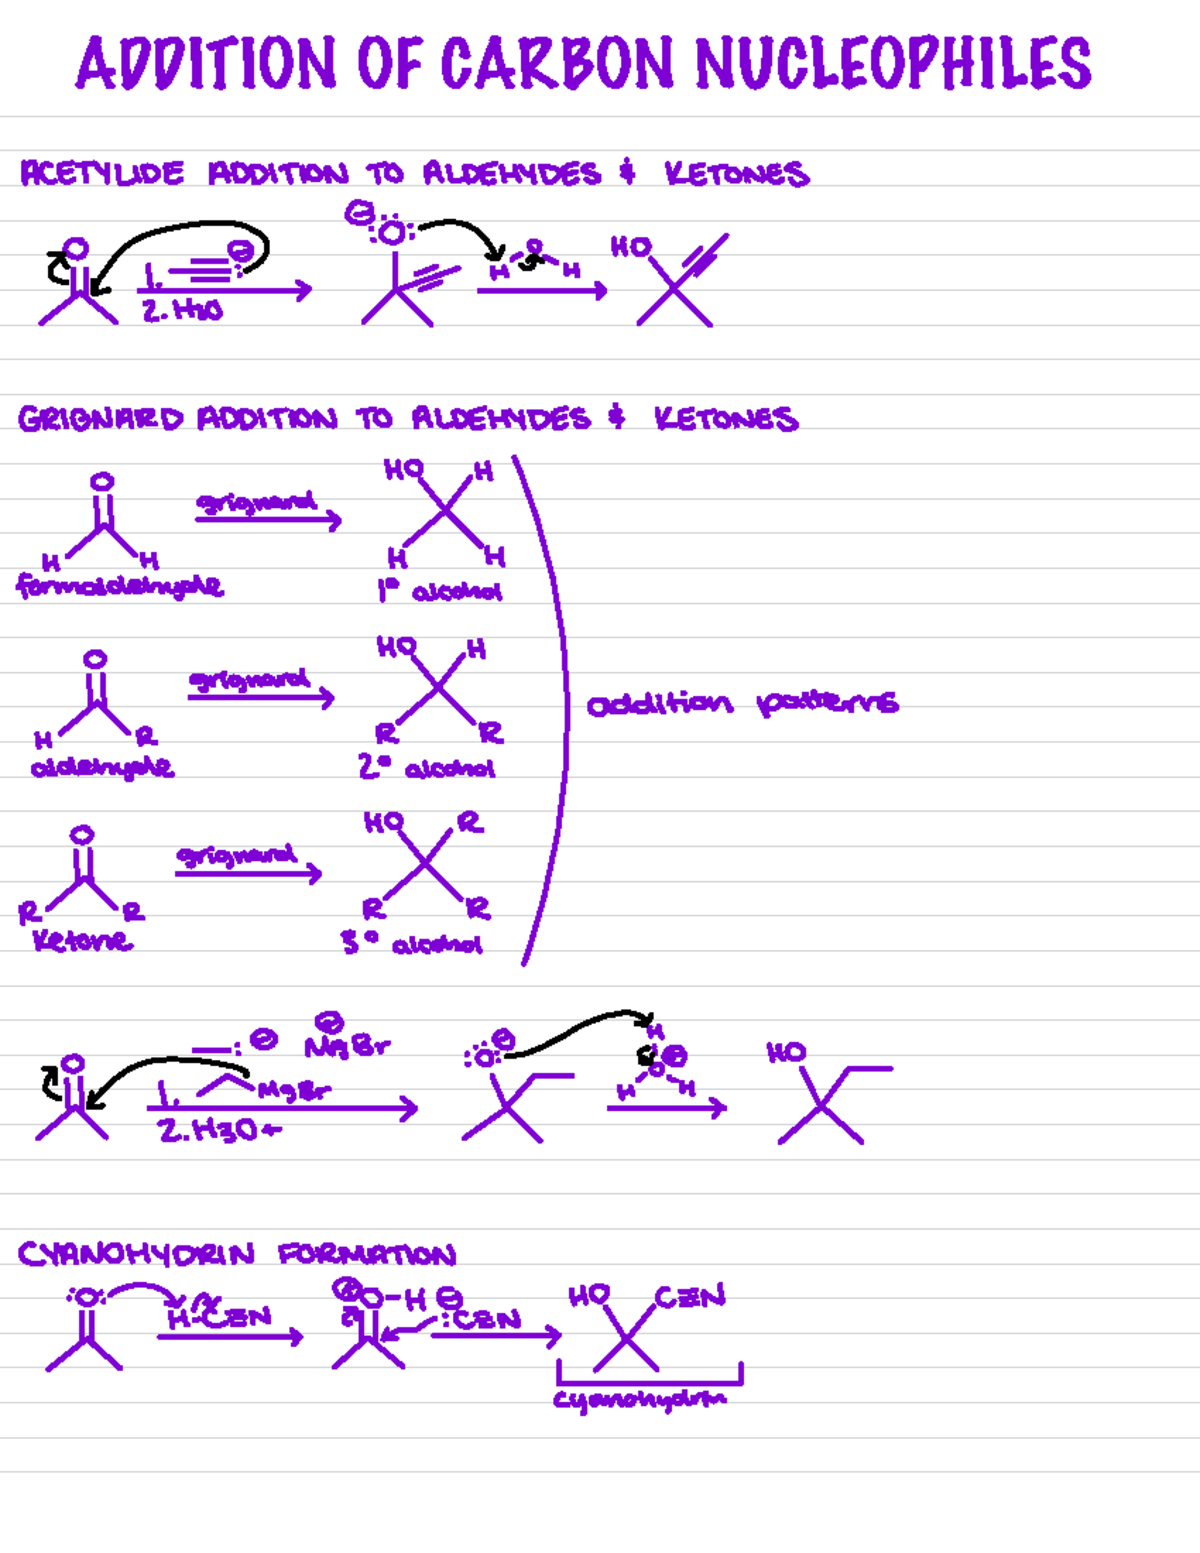 ADDITION OF CARBON NUCLEOPHILES
ACETYLIDE ADDITION TO ALDEHYDES & KETONES
O
1.
⊖
2. H2O
⊖
:O:
H O H
HO
GRIGNARD ADDITION TO ALDEHYDES & KETONES
O
H H
formaldehyde
grignard
HO H
H H
1° alcohol
O
H R
aldehyde
grignard
HO H
R R
2° alcohol
addition patterns
O
R R
Ketone
grignard
HO R
R R
3° alcohol
O
: ⊖ MgBr
1. MgBr
2. H3O+
:O: ⊖
H
O
H H
HO
CYANOHYDRIN FORMATION
:O:
H-C≡N
O-H
⊖
:C≡N
HO C≡N
cyanohydrin